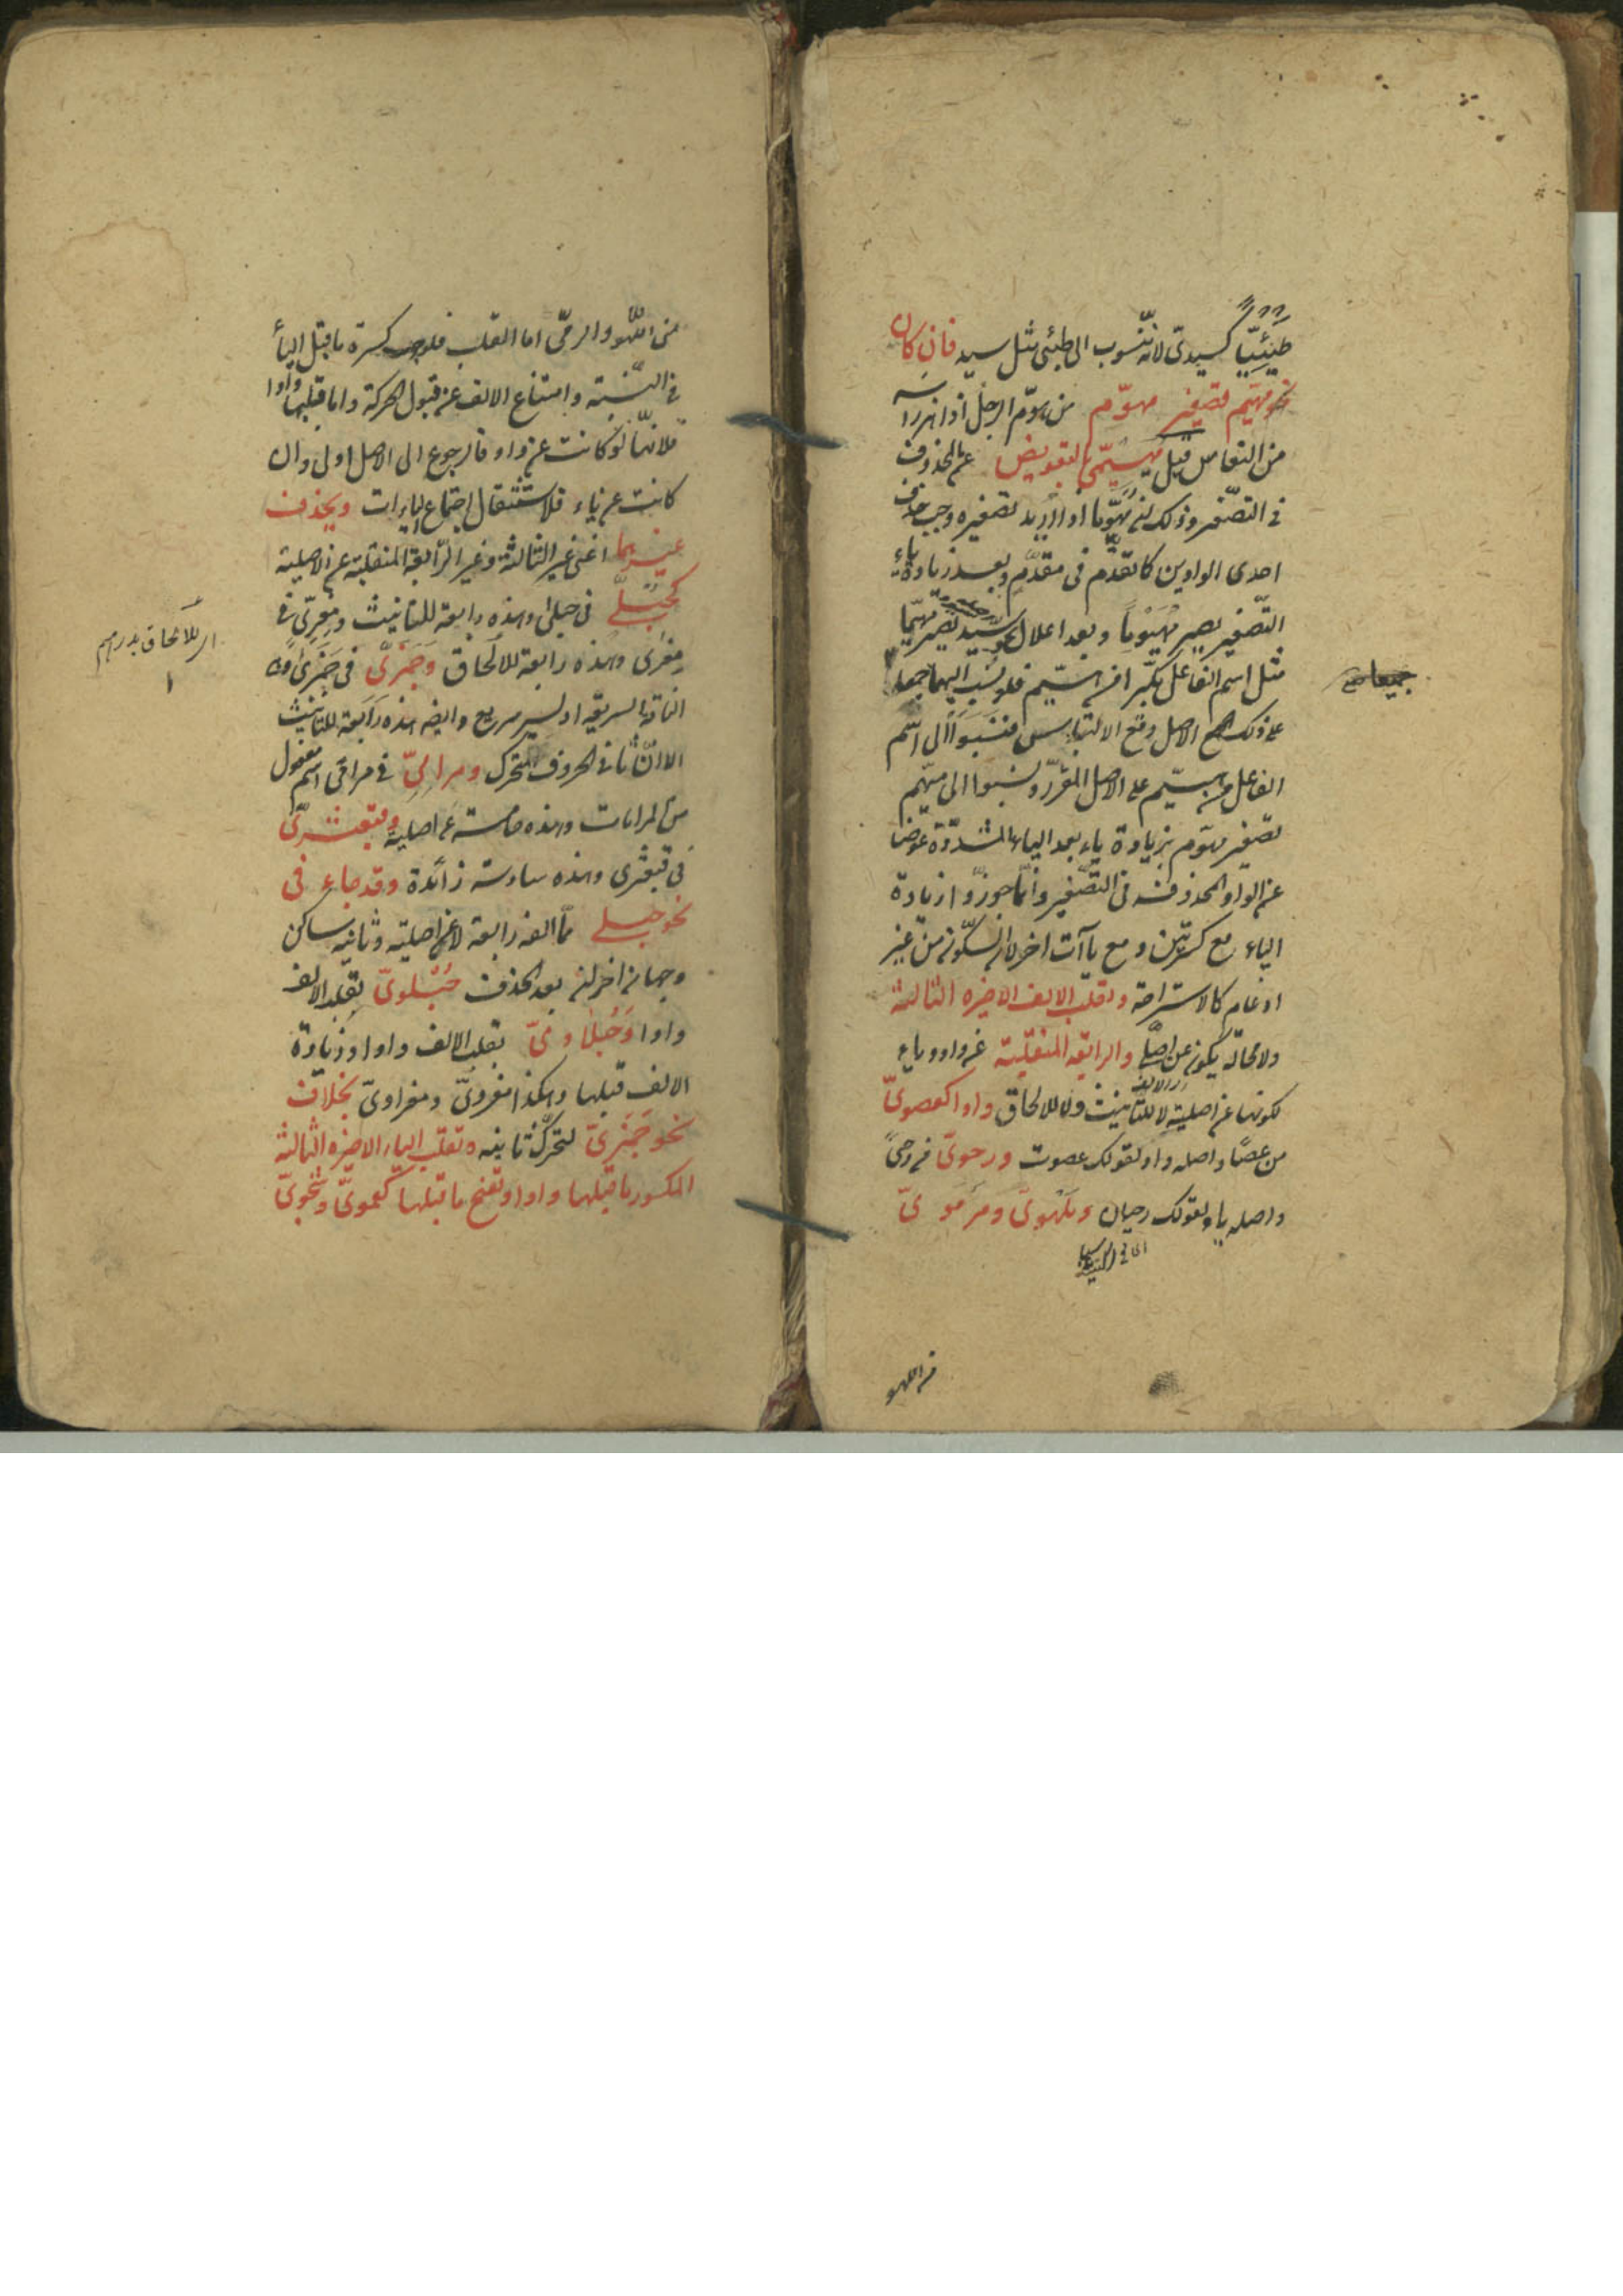 طيئيا كسيدى لانه منسوب الى طيئ مثل سيد فان كان
نحو مهيم تصغير مهوّم من هوّم الرجل اذا هز راسه
من النعاس قيل مهيّمىّ بالتعويض عن المحذوف
فى التصغير وذلك لان مهوّما اذا اريد تصغيره وجب حذف
احدى الواوين كما تقدّم فى مقدّم وبعد زيادة ياء
التّصغير يصير مهيوما وبعد اعلال نحو سيّد يصير مهيّما
مثل اسم الفاعل مكبّرا من هيّم فلو نسب اليهما جميعا
على ذلك الاصل وقع الالتباس فنسبوا الى اسم
الفاعل من هيّم على الاصل المقرّر ونسبوا الى مهيّم
تصغير مهوّم بزيادة ياء بعد الياء المشدّدة عوضا
عن الواو المحذوفة فى التّصغير وانّما جوزوا زيادة
الياء مع كسرتين ومع ياآت اخر لان السّكون من غير
ادغام كالاستراحة وتقلب الالف الاخيرة الثالثة
ولا محالة يكون عن اصل والرابعة المنقلبة عن واو وياء
لكونها عن اصلية لا للتأنيث ولا للالحاق واوا كعصوىّ
من عصًا واصله واو لقولك عصوت ورحوىّ فى رحىً
واصله ياء لقولك رحيان وملهوىّ ومرموىّ
من اللهو
من اللّهو والرمّى اما القلب فلوجوب كسرة ما قبل الياء
فى النّسبة وامتناع الالف عن قبول الحركة واما قلبها واوا
فلانها لو كانت عن واو فالرجوع الى الاصل اولى وان
كانت عن ياء فلاستثقال اجتماع الياءات ويحذف
غيرهما اعنى غير الثالثة وغير الرّابعة المنقلبة عن الاصلية
كحبلىّ فى حبلى وهذه رابعة للتانيث ومعزىّ فى
معزى وهذه رابعة للالحاق وجمزىّ فى جمزى وهى
الناقة السريعة او لسير سريع وايضا هذه رابعة للتانيث
الا انّ ثانى الحروف المتحرك ومرامىّ فى مرامى اسم مفعول
من المرامات وهذه خامسة عن اصلية وقبعثرىّ
فى قبعثرى وهذه سادسة زائدة وقد جاء فى
نحو حبلى ممّا الفه رابعة لا عن اصلية وثانيه ساكن
وجهان اخران بعد الحذف حبلوىّ بقلب الالف
واوا وحبلاوىّ بقلب الالف واوا وزيادة
الالف قبلها وهكذا معزوىّ ومعزاوىّ بخلاف
نحو جمزىّ لتحرّك ثانيه وتقلب الياء الاخيرة الثالثة
المكسور ما قبلها واوا وتفتح ما قبلها كعموىّ وشجوىّ
اى للالحاق بدرهم